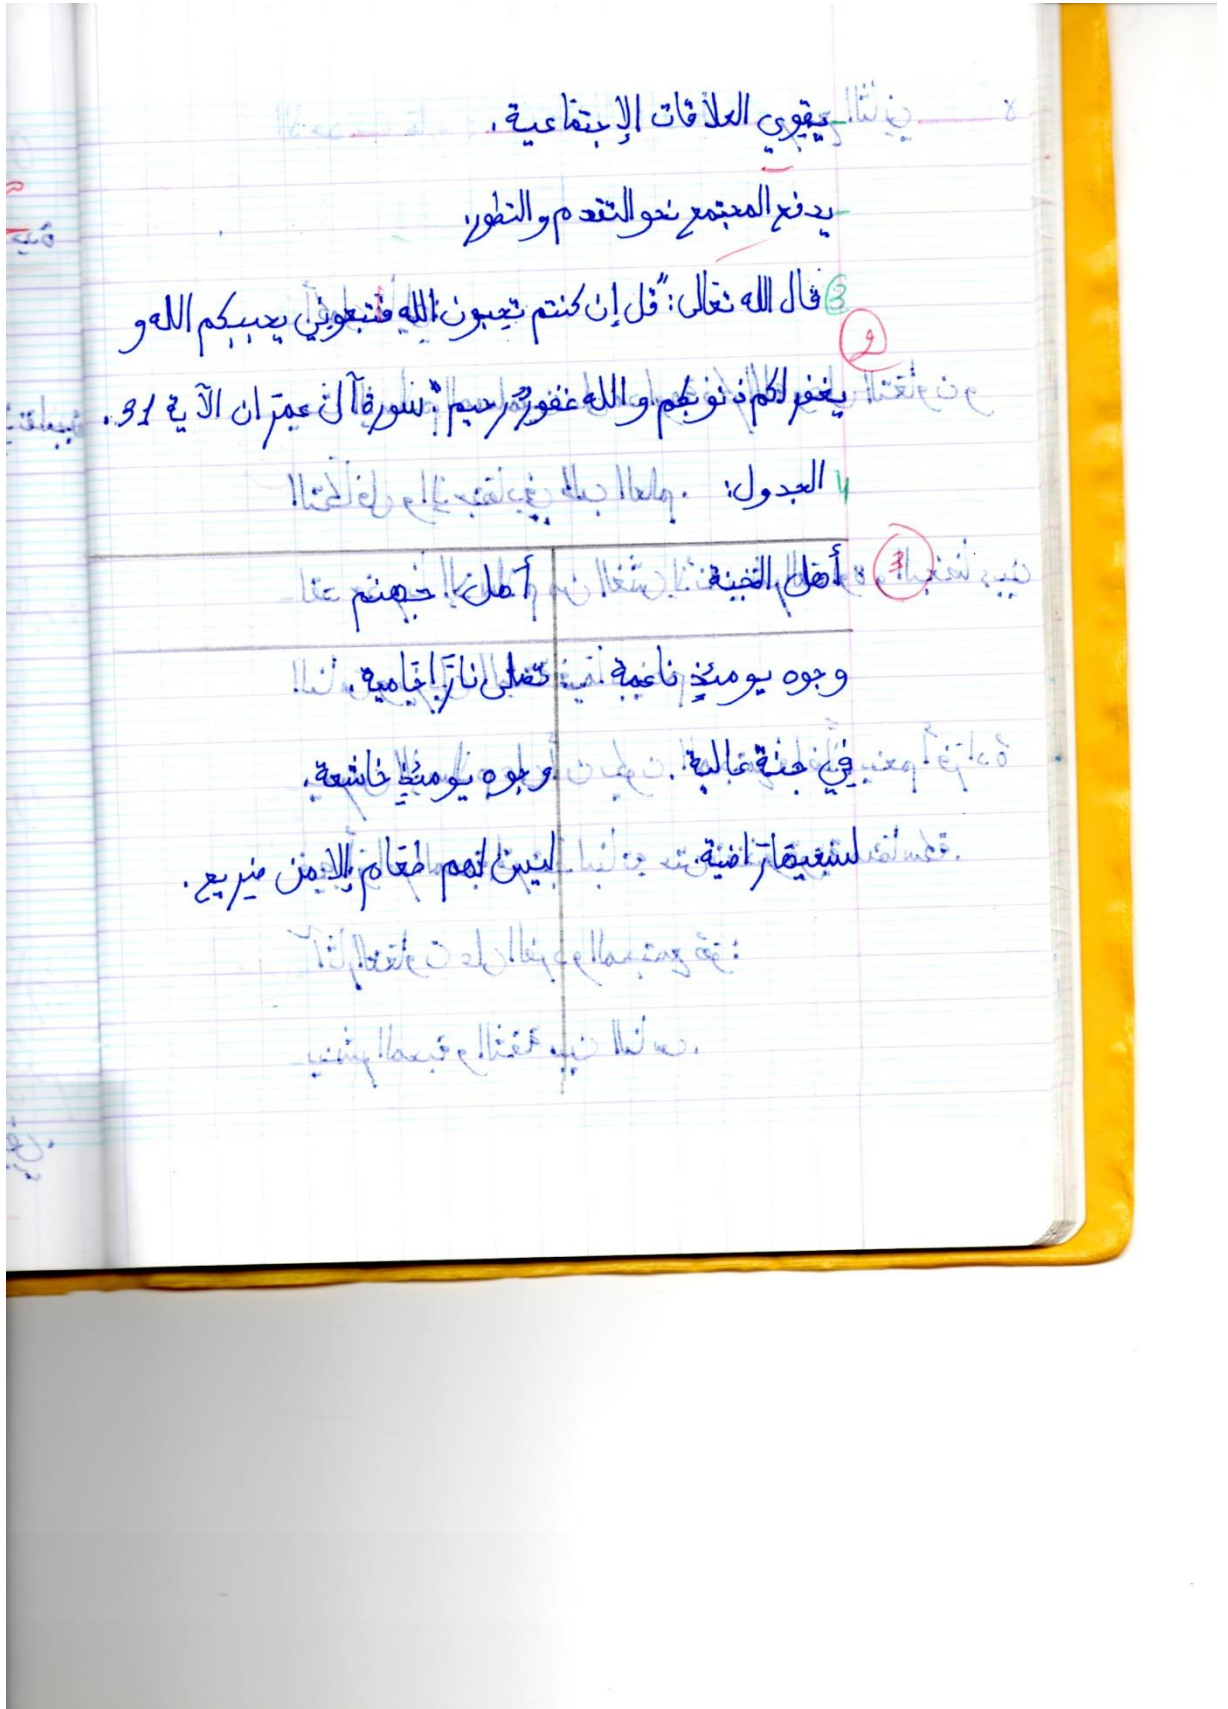 - يقوي العلاقات الإجتماعية.
- يدفع المجتمع نحو التقدم و التطور.
3 قال الله تعالى: "قل إن كنتم تحبون الله فتبعوني يحببكم الله و
يغفر لكم ذنوبكم و الله غفورٌ رحيم" سورة آل عمران الآية 31.
4 الجدول:
أهل الجنة أهل جهنم
وجوه يومئذٍ ناعمة. تصلى نارًا حامية.
في جنة عالية. وجوه يومئذٍ خاشعة.
لسعيها راضية. ليس لهم طعام إلا من ضريع.